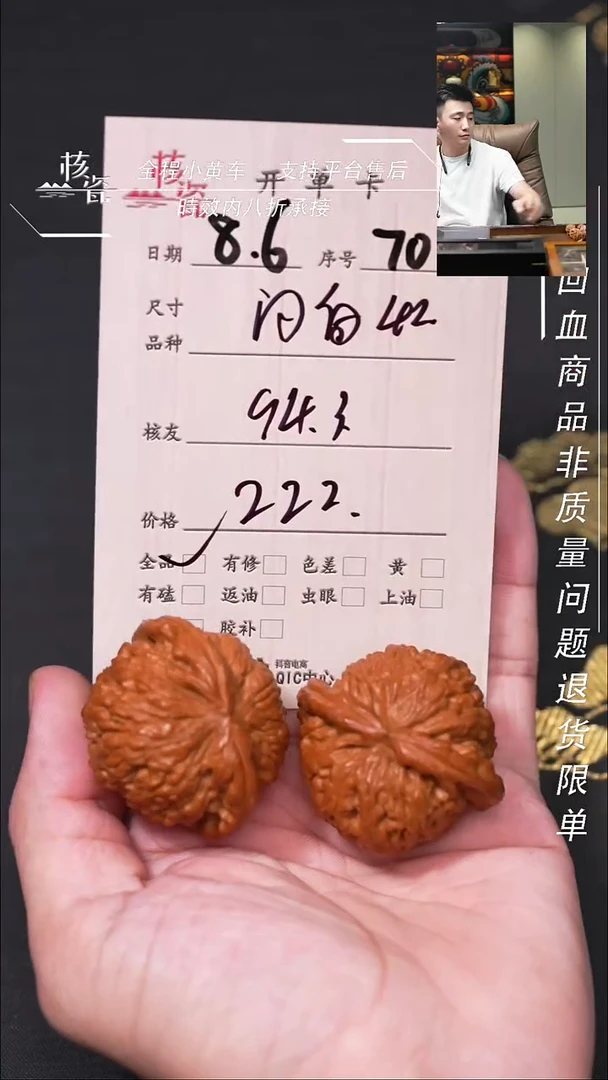 核瓷
全程小黄车 支持平台售后
時效内八折承接
核瓷
开单卡
日期 8.6 序号 70
尺寸
品种 闷白 42
核友 94.3
价格 222.
全品 有修 色差 黄
有磕 返油 虫眼 上油
胶补
抖音电商
QIC中心
回血商品非质量问题退货限单